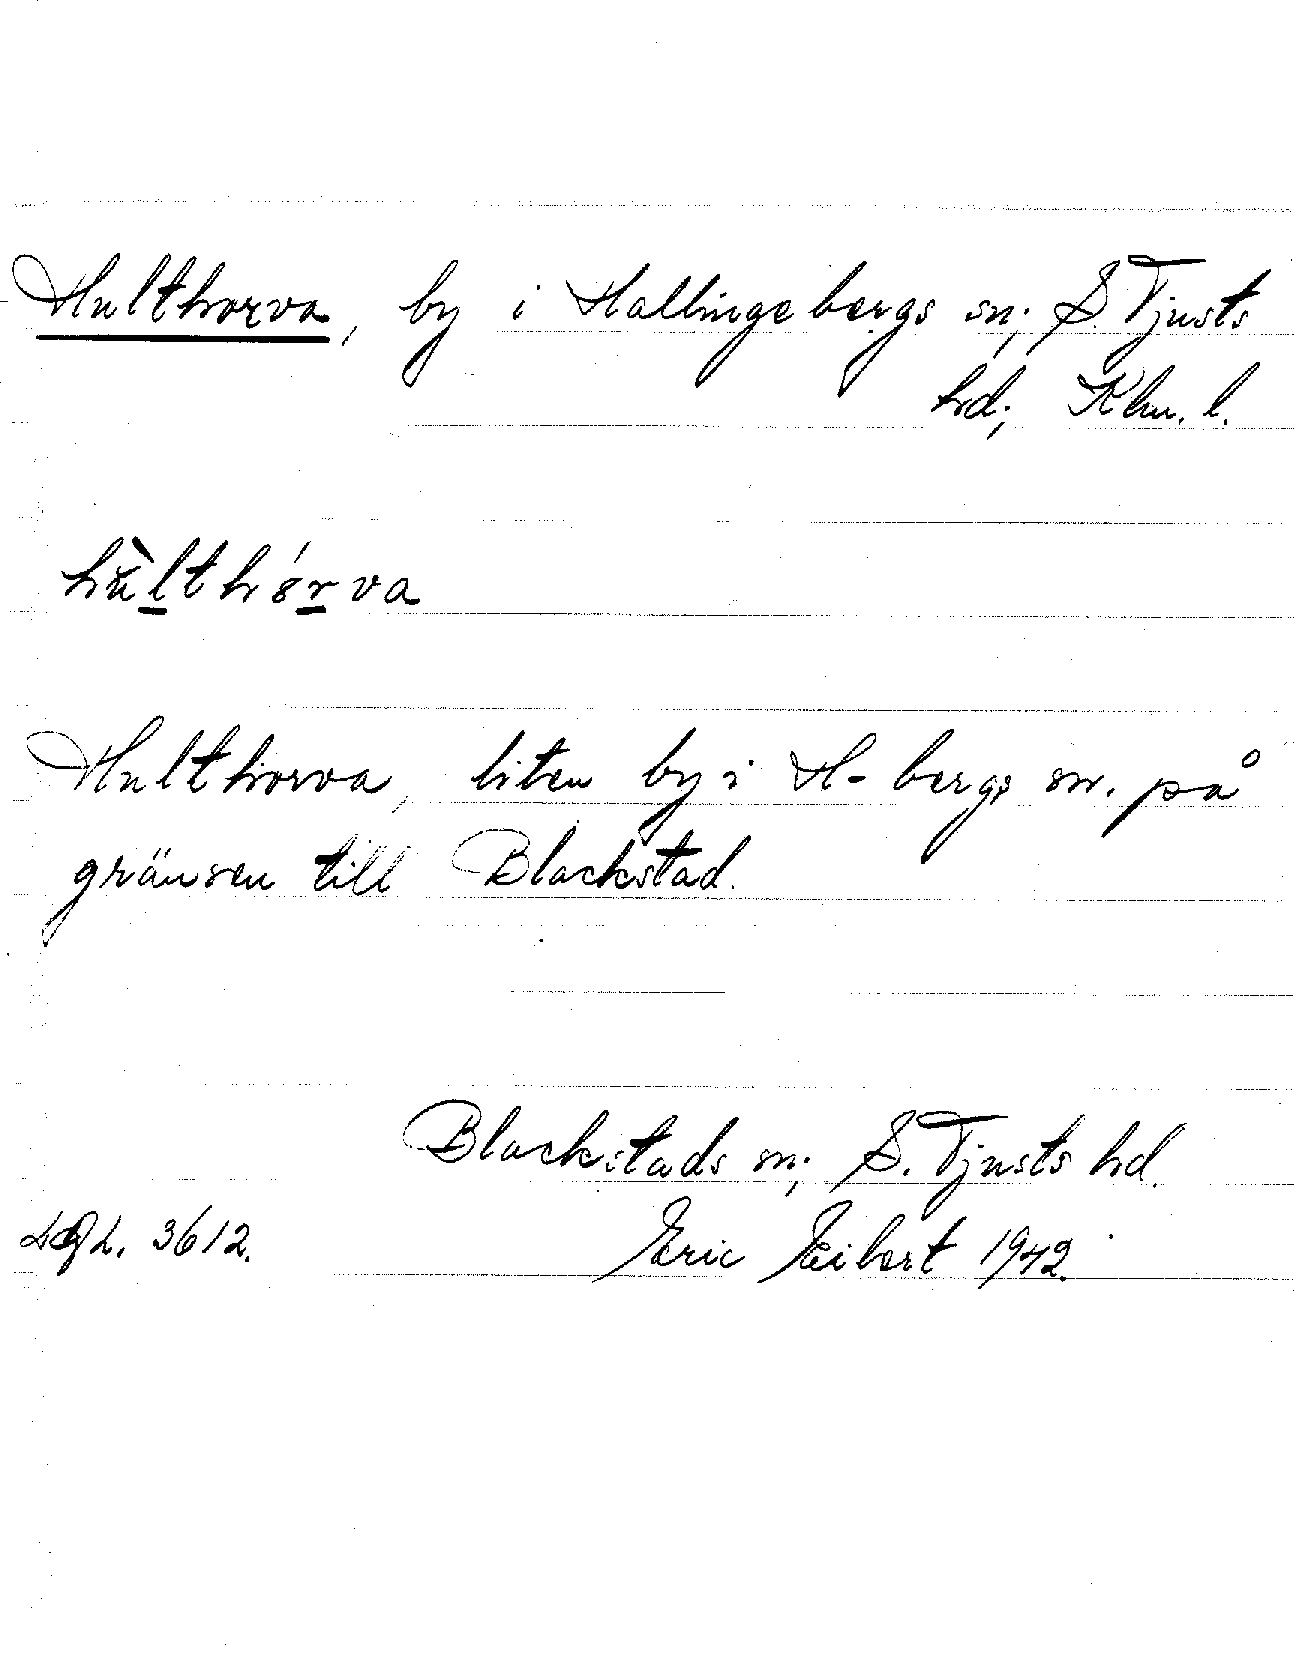 Hulthorva, by i Hallingebergs sn; S. Tjusts
hd; Klm. l.
hùlthórva
Hulthorva, liten by i H-bergs sn. på
gränsen till Blackstad.
Blackstads sn; S. Tjusts hd.
3612. Eric Eibert 1942.